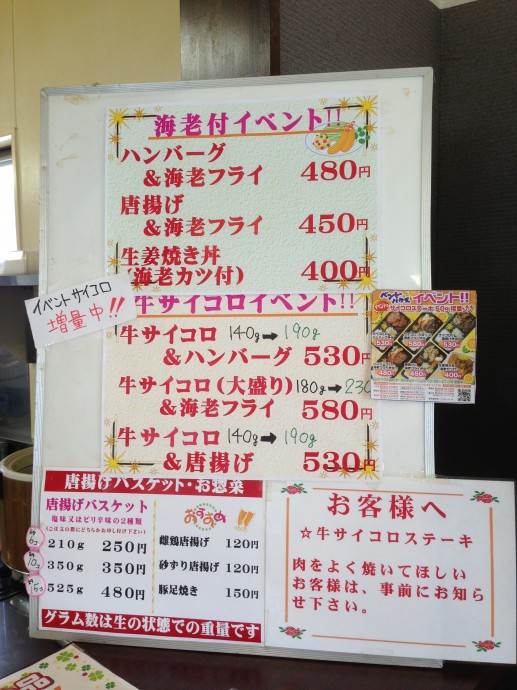 海老付イベント!!
ハンバーグ
＆海老フライ 480円
唐揚げ
＆海老フライ 450円
生姜焼き丼
(海老カツ付) 400円
イベントサイコロ
増量中!!
牛サイコロイベント!!
牛サイコロ 140g→190g
＆ハンバーグ 530円
牛サイコロ(大盛り) 180g→230
＆海老フライ 580円
牛サイコロ 140g→190g
＆唐揚げ 530円
イベント!!
サイコロステーキ 50g増量
530円
580円
530円
480円
450円
400円
唐揚げバスケット・お惣菜
唐揚げバスケット
塩味又はピリ辛味の2種類
(ご注文の際にどちらかお申し付け下さい)
210g 250円
350g 350円
525g 480円
おすすめ!!
雌鶏唐揚げ 120円
砂ずり唐揚げ 120円
豚足焼き 150円
グラム数は生の状態での重量です
お客様へ
☆牛サイコロステーキ
肉をよく焼いてほしい
お客様は、事前にお知ら
せ下さい。